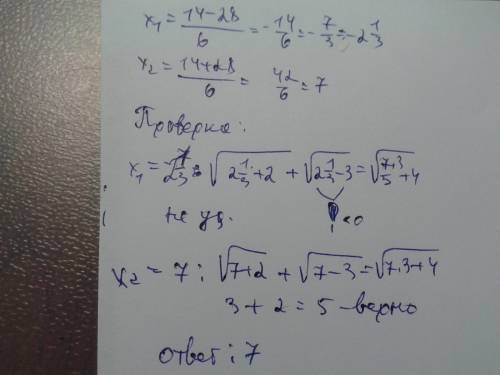 x₁ = (14-28)/6 = -14/6 = -7/3 = -2 1/3
x₂ = (14+28)/6 = 42/6 = 7
Проверка:
x₁ = : √(2 1/3 + 2) + √(2 1/3 - 3) = √( + 4)
не уд. ! < 0
x₂ = 7 : √(7+2) + √(7-3) = √(7·3+4)
3 + 2 = 5 - верно
ответ: 7